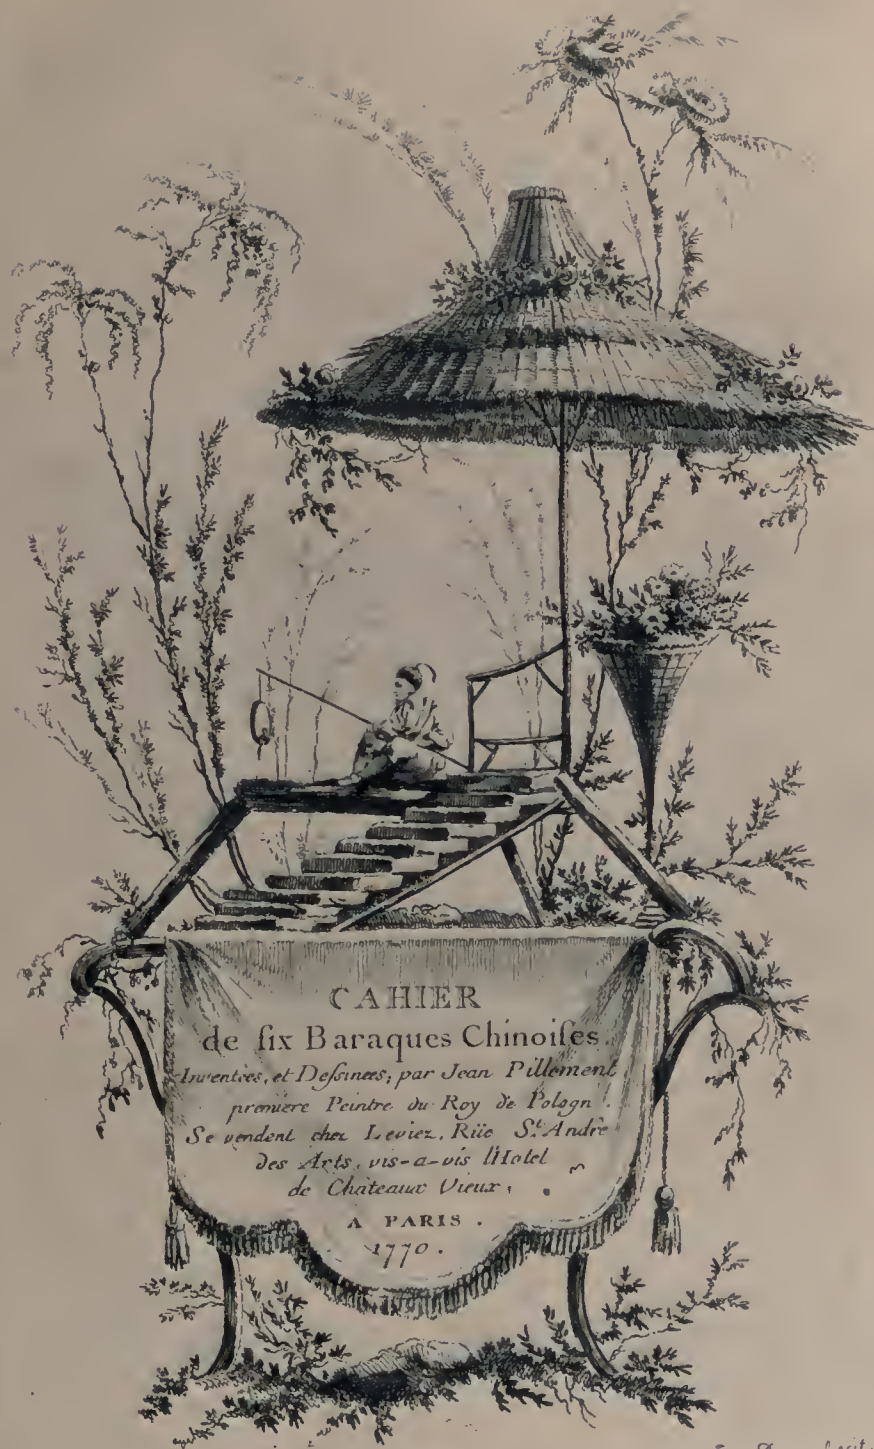 CAHIER
de ſix Baraques Chinoiſes.
Inventées, et Deſsinees, par Jean Pillement
premiere Peintre du Roy de Pologn.
Se vendent chez Leviez, Rüe St. André
des Arts, vis-a-vis l'Hotel
de Châteaux Vieux.
A PARIS.
1770.